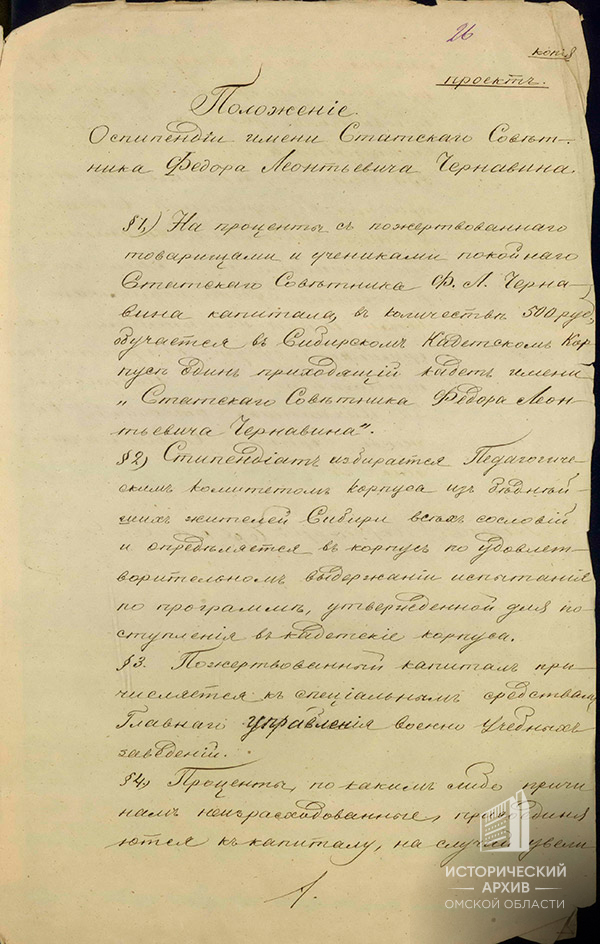 26
копія
проектъ.
Положеніе.
О спипендіи имени Статскаго Совѣт-
ника Федора Леонтьевича Чернавина.
§1.) На проценты съ пожертвованнаго
товарищами и учениками покойнаго
Статскаго Совѣтника Ф. Л. Черна-
вина капитала, въ количествѣ 500 руб.
обучается въ Сибирскомъ Кадетскомъ Кор-
пусѣ одинъ приходящій кадетъ имени
„Статскаго Совѣтника Федора Леон-
тьевича Чернавина".
§2) Стипендіатъ избирается Педагогиче-
скимъ комитетомъ корпуса изъ бѣднѣй-
шихъ жителей Сибири всѣхъ сословій
и опредѣляется въ корпусъ по удовлет-
ворительномъ выдержаніи испытанія
по программѣ, утвержденной для по-
ступленія въ кадетскіе корпуса.
§3. Пожертвованный капиталъ при-
числяется къ спеціальнымъ средствамъ
Главнаго управленія военно учебныхъ
заведеній.
§4) Проценты, по какимъ либо причи
намъ неизрасходованные, присоединя
ются къ капиталу, на случай увели
1.
ИСТОРИЧЕСКИЙ
АРХИВ
ОМСКОЙ ОБЛАСТИ